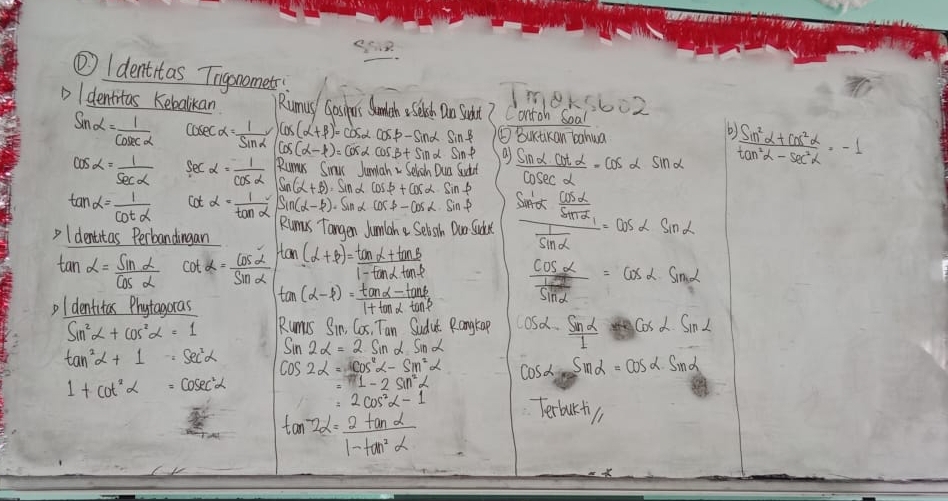 Ⓓ Identitas Trigonometri
▷ Identitas Kebalikan
Sin α = 1/Cosec α   Cosec α = 1/Sin α
cos α = 1/Sec α   Sec α = 1/cos α
tan α = 1/cot α   cot α = 1/tan α
▷ Identitas Perbandingan
tan α = Sin α/Cos α   cot α = Cos α/Sin α
▷ Identitas Phytagoras
Sin²α + cos²α = 1
tan²α + 1 = Sec²α
1 + cot²α = Cosec²α
Rumus Cosinus Jumlah & Selisih Dua Sudut
Cos (α+β) = cos α cos β - Sin α Sin β
Cos (α-β) = Cos α Cos β + Sin α Sin β
Rumus Sinus Jumlah & Selisih Dua Sudut
Sin (α+β) = Sin α cos β + cos α . Sin β
Sin (α-β) = Sin α cos β - Cos α . Sin β
Rumus Tangen Jumlah & Selisih Dua Sudut
tan (α+β) = tan α + tan β / 1 - tan α tan β
tan (α-β) = tan α - tan β / 1 + tan α tan β
Rumus Sin, Cos, Tan Sudut Rangkap
Sin 2α = 2 Sin α Sin α
Cos 2α = cos²α - Sin²α
= 1 - 2 sin²α
= 2 cos²α - 1
tan 2α = 2 tan α / 1 - tan² α
Contoh Soal
⑤ Buktikan bahwa
a) Sin α cot α / Cosec α = Cos α sin α
Sin α . Cos α/Sin α / 1/Sin α = Cos α Sin α
Cos α / 1/Sin α = Cos α . Sin α
Cos α . Sin α/1 = Cos α . Sin α
Cos α Sin α = Cos α . Sin α
Terbukti //
b) Sin²α + cos²α / tan²α - sec²α = -1